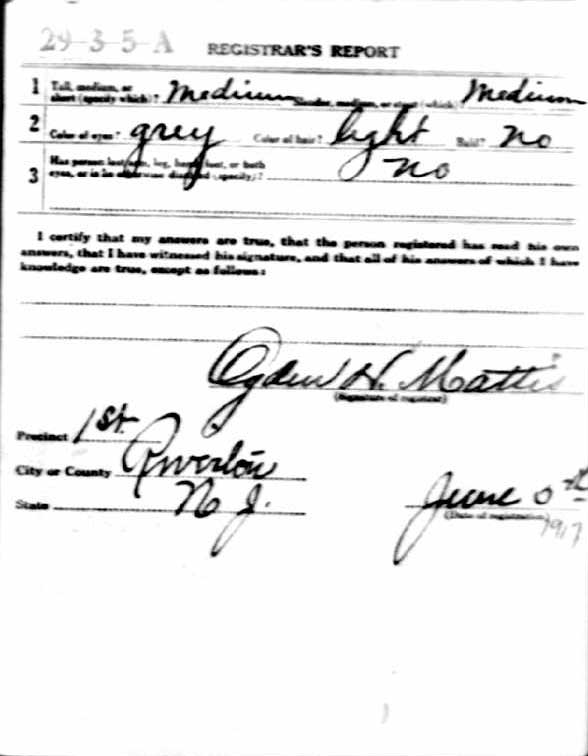 29-3-5-A REGISTRAR'S REPORT
1 Tall, medium, or short (specify which)? Medium Slender, medium, or stout (which)? Medium
2 Color of eyes? grey Color of hair? light Bald? No
3 Has person lost arm, leg, hand, foot, or both eyes, or is he otherwise disabled (specify)? No
I certify that my answers are true, that the person registered has read his own
answers, that I have witnessed his signature, and that all of his answers of which I have
knowledge are true, except as follows:
Ogden H. Mattis
(Signature of registrar)
Precinct 1st
City or County Riverton
State N. J.
June 5th
(Date of registration) 1917